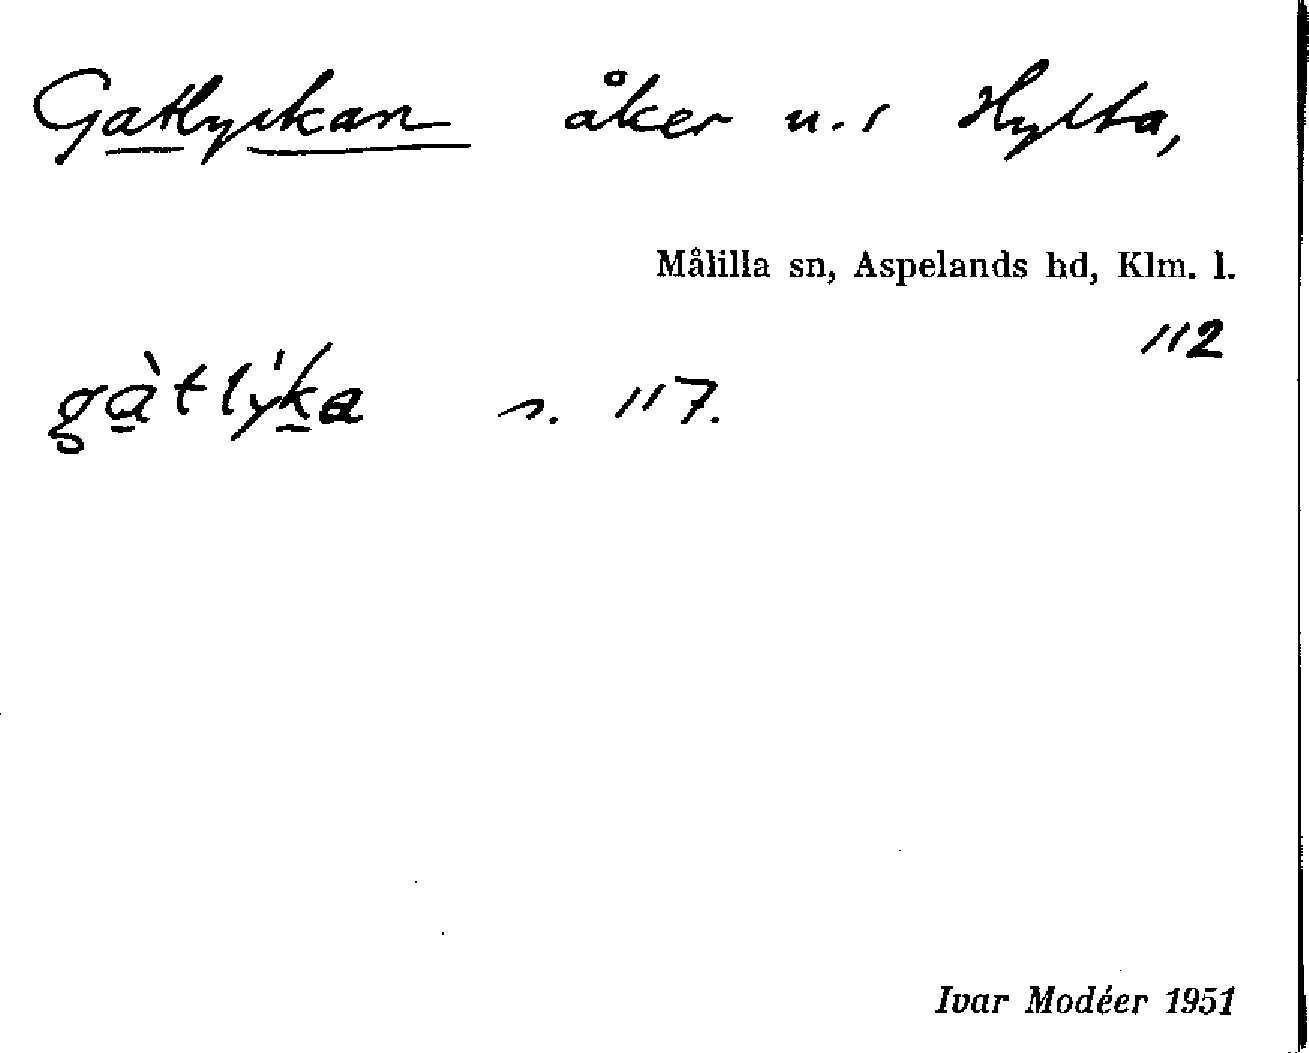 Gatlyckan åker u.s Hylta,
Målilla sn, Aspelands hd, Klm. l.
112
gàtlýka s. 117.
Ivar Modéer 1951